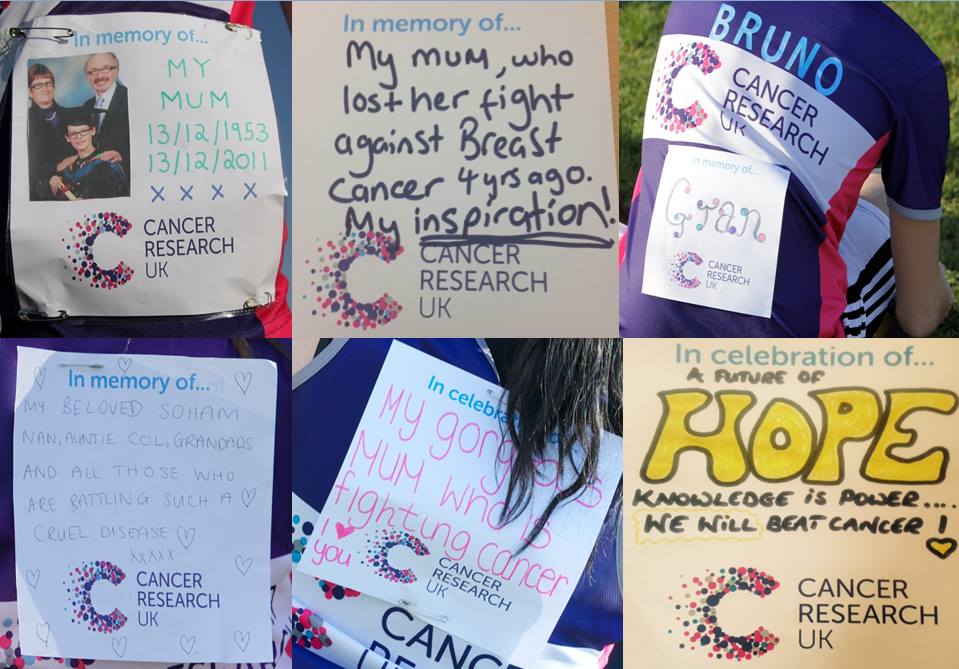 In memory of...
MY
MUM
13/12/1953
13/12/2011
x x x x
CANCER
RESEARCH
UK
In memory of...
My mum, who
lost her fight
against Breast
cancer 4yrs ago.
My inspiration!
CANCER
RESEARCH
UK
BRUNO
CANCER
RESEARCH
UK
In memory of...
Gran
CANCER
RESEARCH
UK
In memory of...
MY BELOVED SOHAM
NAN, AUNTIE COL, GRANDADS
AND ALL THOSE WHO
ARE BATTLING SUCH A
CRUEL DISEASE
xxxxx
CANCER
RESEARCH
UK
In
My
MUM who is
fighting cancer
I ♥
you
CANCER
RESEARCH
UK
In celebration of...
A FUTURE OF
HOPE
KNOWLEDGE IS POWER....
WE WILL BEAT CANCER!
CANCER
RESEARCH
UK